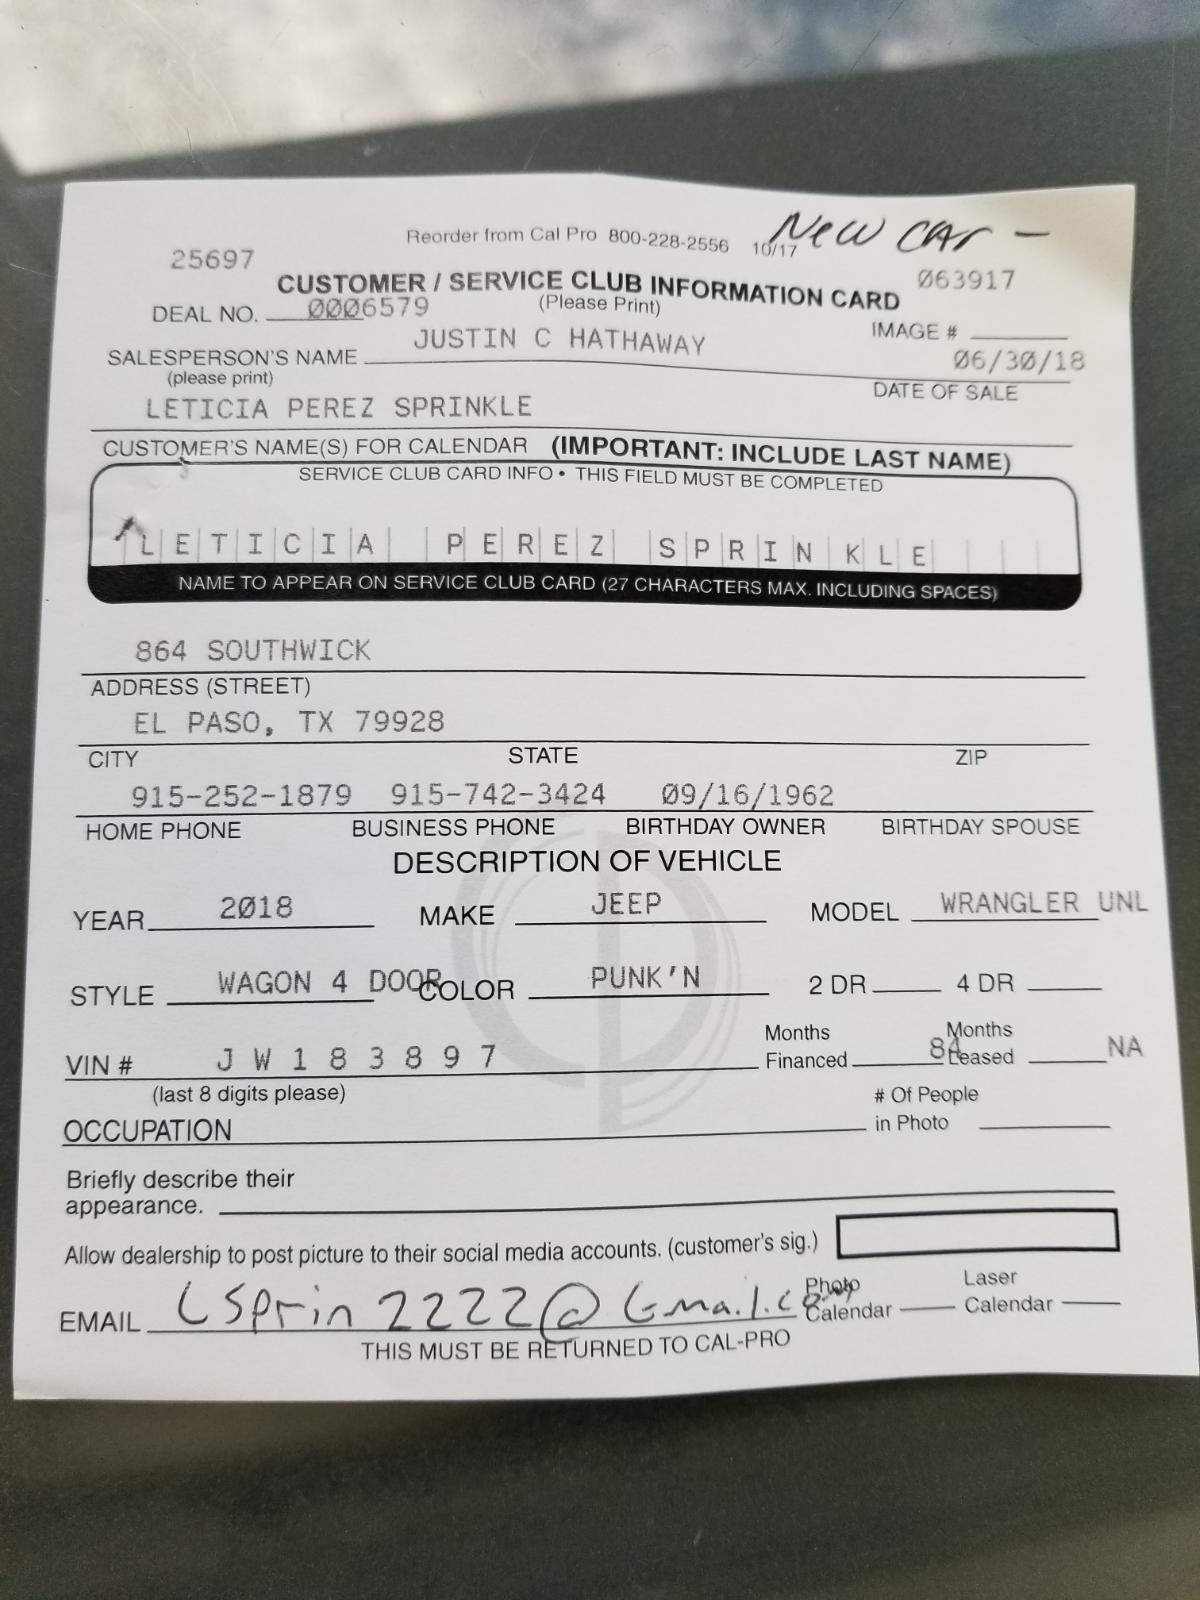 Reorder from Cal Pro 800-228-2556 10/17 New CAr -
25697 063917
CUSTOMER / SERVICE CLUB INFORMATION CARD
DEAL NO. 0006579 (Please Print)
IMAGE #
SALESPERSON'S NAME JUSTIN C HATHAWAY 06/30/18
(please print) DATE OF SALE
LETICIA PEREZ SPRINKLE
CUSTOMER'S NAME(S) FOR CALENDAR (IMPORTANT: INCLUDE LAST NAME)
SERVICE CLUB CARD INFO • THIS FIELD MUST BE COMPLETED
LETICIA PEREZ SPRINKLE
NAME TO APPEAR ON SERVICE CLUB CARD (27 CHARACTERS MAX. INCLUDING SPACES)
864 SOUTHWICK
ADDRESS (STREET)
EL PASO, TX 79928
CITY STATE ZIP
915-252-1879 915-742-3424 09/16/1962
HOME PHONE BUSINESS PHONE BIRTHDAY OWNER BIRTHDAY SPOUSE
DESCRIPTION OF VEHICLE
YEAR 2018 MAKE JEEP MODEL WRANGLER UNL
STYLE WAGON 4 DOOR COLOR PUNK'N 2 DR 4 DR
VIN # J W 1 8 3 8 9 7 Months Financed 84 Months Leased NA
(last 8 digits please)
OCCUPATION # Of People in Photo
Briefly describe their
appearance.
Allow dealership to post picture to their social media accounts. (customer's sig.)
EMAIL LSprin2222@Gmail.com Photo Calendar Laser Calendar
THIS MUST BE RETURNED TO CAL-PRO